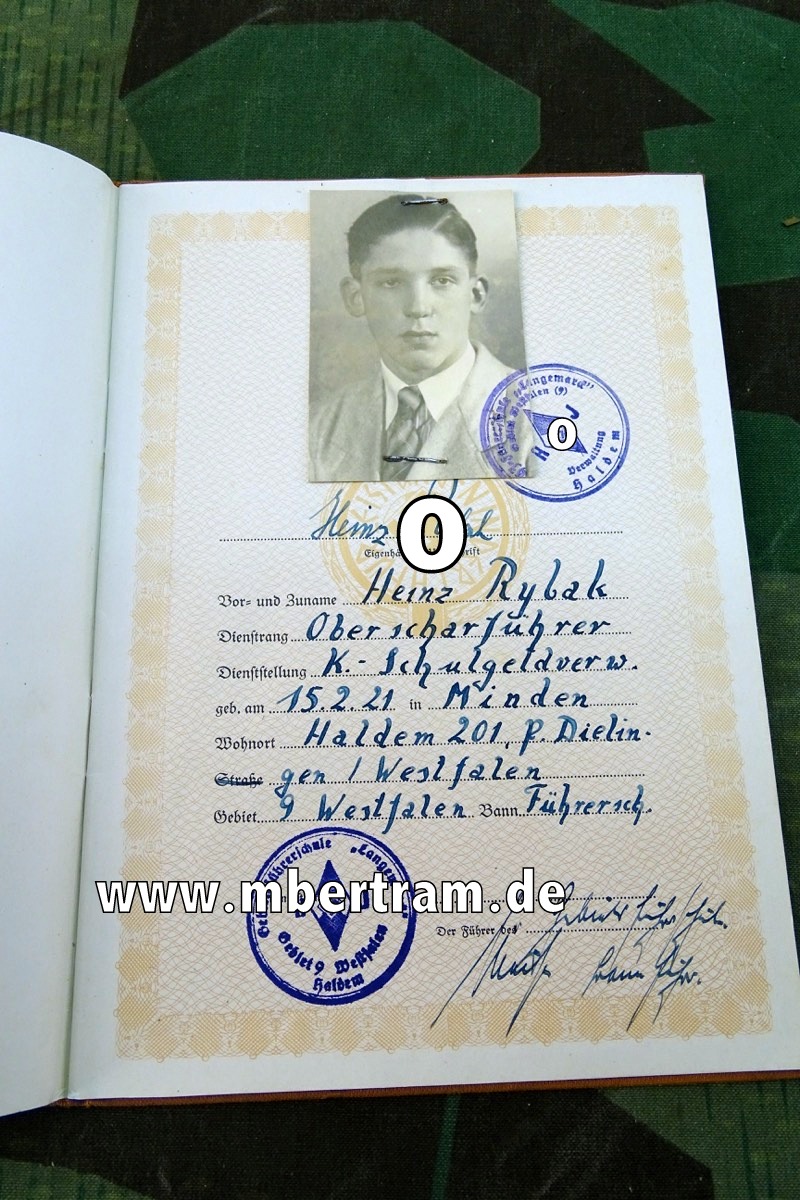 „Langemarck"
Westfalen (9)
H J
Verwaltung
Haldem
Heinz
Vor= und Zuname Heinz Rybak
Dienstrang Oberscharführer
Dienststellung K.- Schulgeldverw.
geb. am 15.2.21 in Minden
Wohnort Haldem 201, P. Dielin-
Straße gen / Westfalen
Gebiet 9 Westfalen Bann Führersch.
Gebietsführerschule „Langemarck"
Gebiet 9 Westfalen
Haldem
www.mbertram.de
Der Führer des